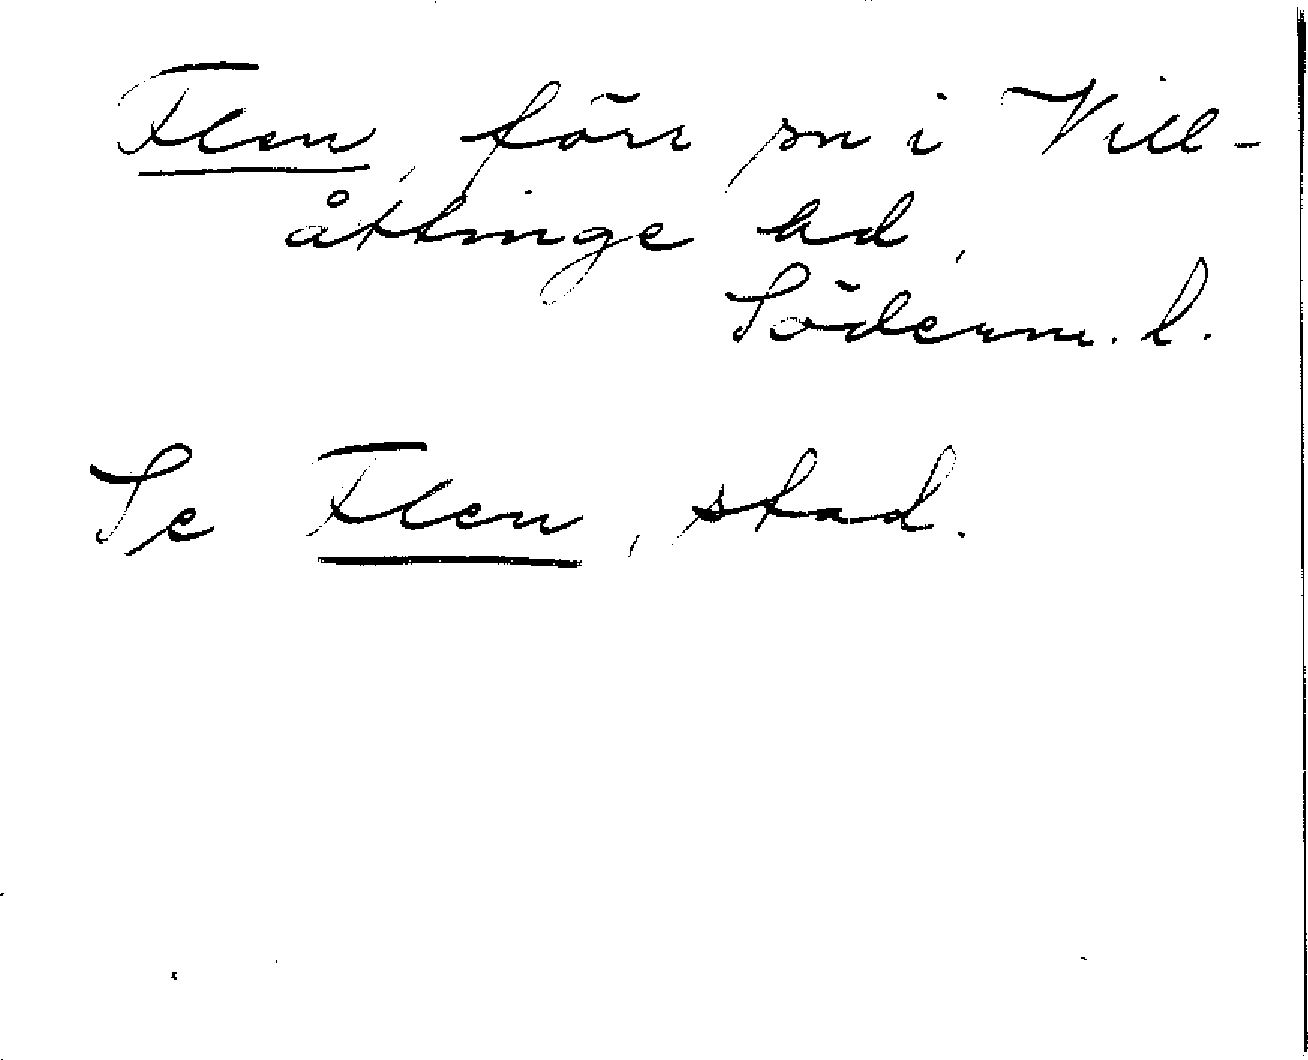 Flen, förr sn i Vill-
åttinge hd,
Söderm. l.
Se Flen, stad.